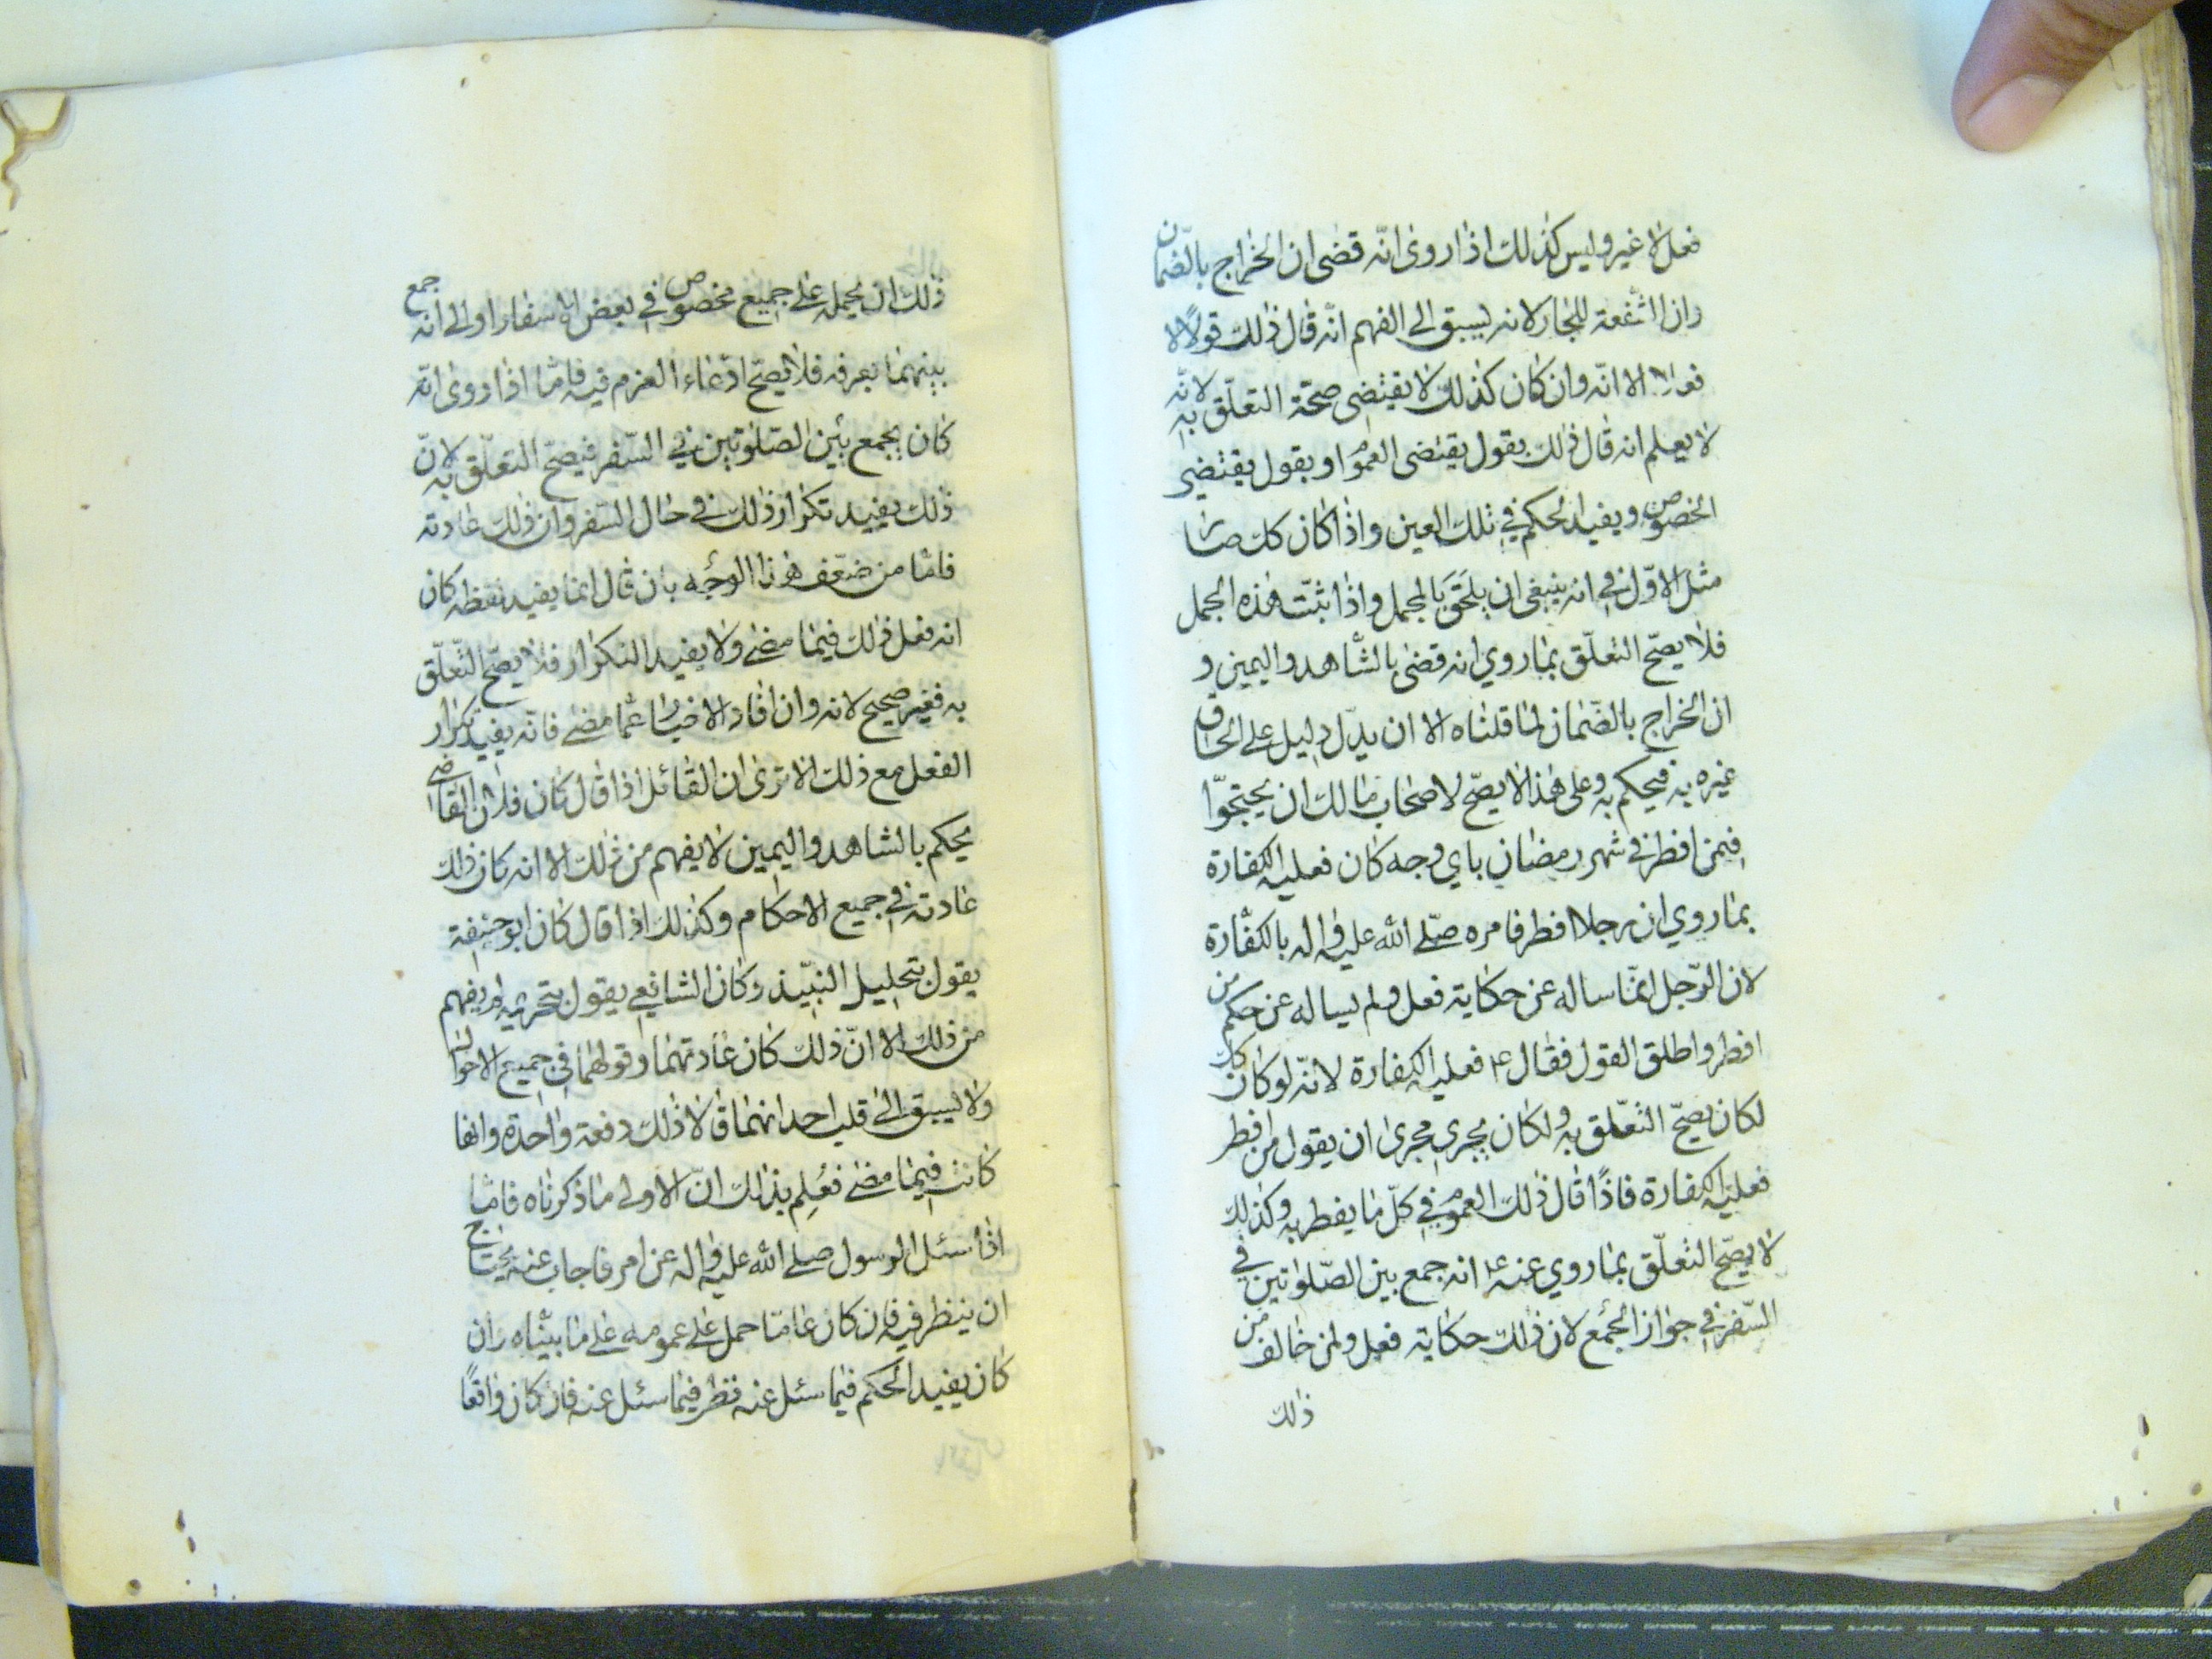 فعل لا غير وليس كذلك اذا روى انّه قضى ان الخراج بالضّمان
وان الشفعة للجار لانه يسبق الى الفهم انّه قال ذلك قولًا لا
فعلا الا انّه وان كان كذلك لا يقتضى صحة التعلّق به لانّه
لا يعلم انه قال ذلك بقول يقتضى العموم او بقول يقتضى
الخصوص ويفيد الحكم في تلك العين واذا كان كذلك صار
مثل الاوّل في انه ينبغى ان يلحق بالمجمل واذا ثبت هذه الجمل
فلا يصحّ التعلّق بما روي انه قضى بالشاهد واليمين و
ان الخراج بالضّمان لما قلناه الا ان يدلّ دليل على الحاق
غيره به فيحكم به وعلى هذا لا يصحّ لاصحاب مالك ان يحتجّوا
فيمن افطر في شهر رمضان باي وجه كان فعليه الكفارة
بما روي ان رجلا افطر فامره صلّى الله عليه واله بالكفّارة
لان الرّجل انّما ساله عن حكاية فعل ولم يساله عن حكم من
افطر واطلق القول فقال ع فعليه الكفارة لانّه لو كان كك
لكان يصحّ التّعلّق به ولكان يجري مجرى ان يقول من افطر
فعليه الكفارة فاذا قال ذلك العموم في كلّ ما يفطر به وكذلك
لا يصحّ التعلّق بما روي عنه ع انه جمع بين الصّلوتين في
السّفر في جواز الجمع لان ذلك حكاية فعل ولمن خالف من
ذلك
ذلك ان يحمله على جميع مخصوص في بعض الاسفار اوالى انه جمع
بينهما بعرفه فلا يصحّ ادّعاء العزم فيه فامّا اذا روى انّه
كان يجمع بين الصّلوتين في السّفر فيصحّ التعلّق به لانّ
ذلك يفيد تكرار ذلك في حال السّفر وان ذلك عادته
فامّا من ضعّف هذا الوجه بان قال انما يفيد لفظه كان
انه فعل ذلك فيما مضى ولا يفيد التكرار فلا يصحّ التعلّق
به فغير صحيح لانه وان افاد الاخبار عمّا مضى فانّه يفيد تكرار
الفعل مع ذلك الا ترى ان القائل اذا قال كان فلان القاضى
يحكم بالشاهد واليمين لا يفهم من ذلك الا انه كان ذلك
عادته في جميع الاحكام وكذلك اذا قال كان ابو حنيفة
يقول بتحليل النبيّذ وكان الشافعي يقول بتحريمه لم يفهم
من ذلك الا انّ ذلك كان عادتهما وقولهما في جميع الاحوال
ولا يسبق الى قلب احد انهما قالا ذلك دفعة واحدة وانها
كانت فيما مضى فعُلِم بذلك انّ الاولى ما ذكرناه فامّا
اذا سئل الرسول صلى الله عليه واله عن امر فاجاب عنه يحتاج
ان ينظر فيه فان كان عامّا حمل على عمومه على ما بيّنّاه وان
كان يفيد الحكم فيما سئل عنه نظر فيما سئل عنه فان كان واقعًا